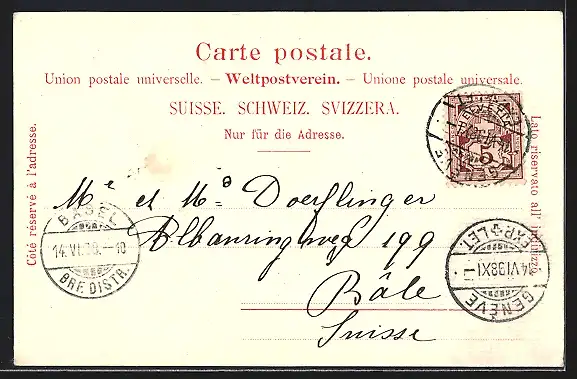 Carte postale.
Union postale universelle. – Weltpostverein. – Unione postale universale.
SUISSE. SCHWEIZ. SVIZZERA.
Nur für die Adresse.
Côté réservé à l'adresse.
Lato riservato all' indirizzo.
HELVETIA
5
Me et Ma Doerflinger
Albanringweg 199
Bâle
Suisse
BASEL
14.VI.98.–10
BRF. DISTR.
GENÈVE
14 VI 98 XI
EXP. LET.